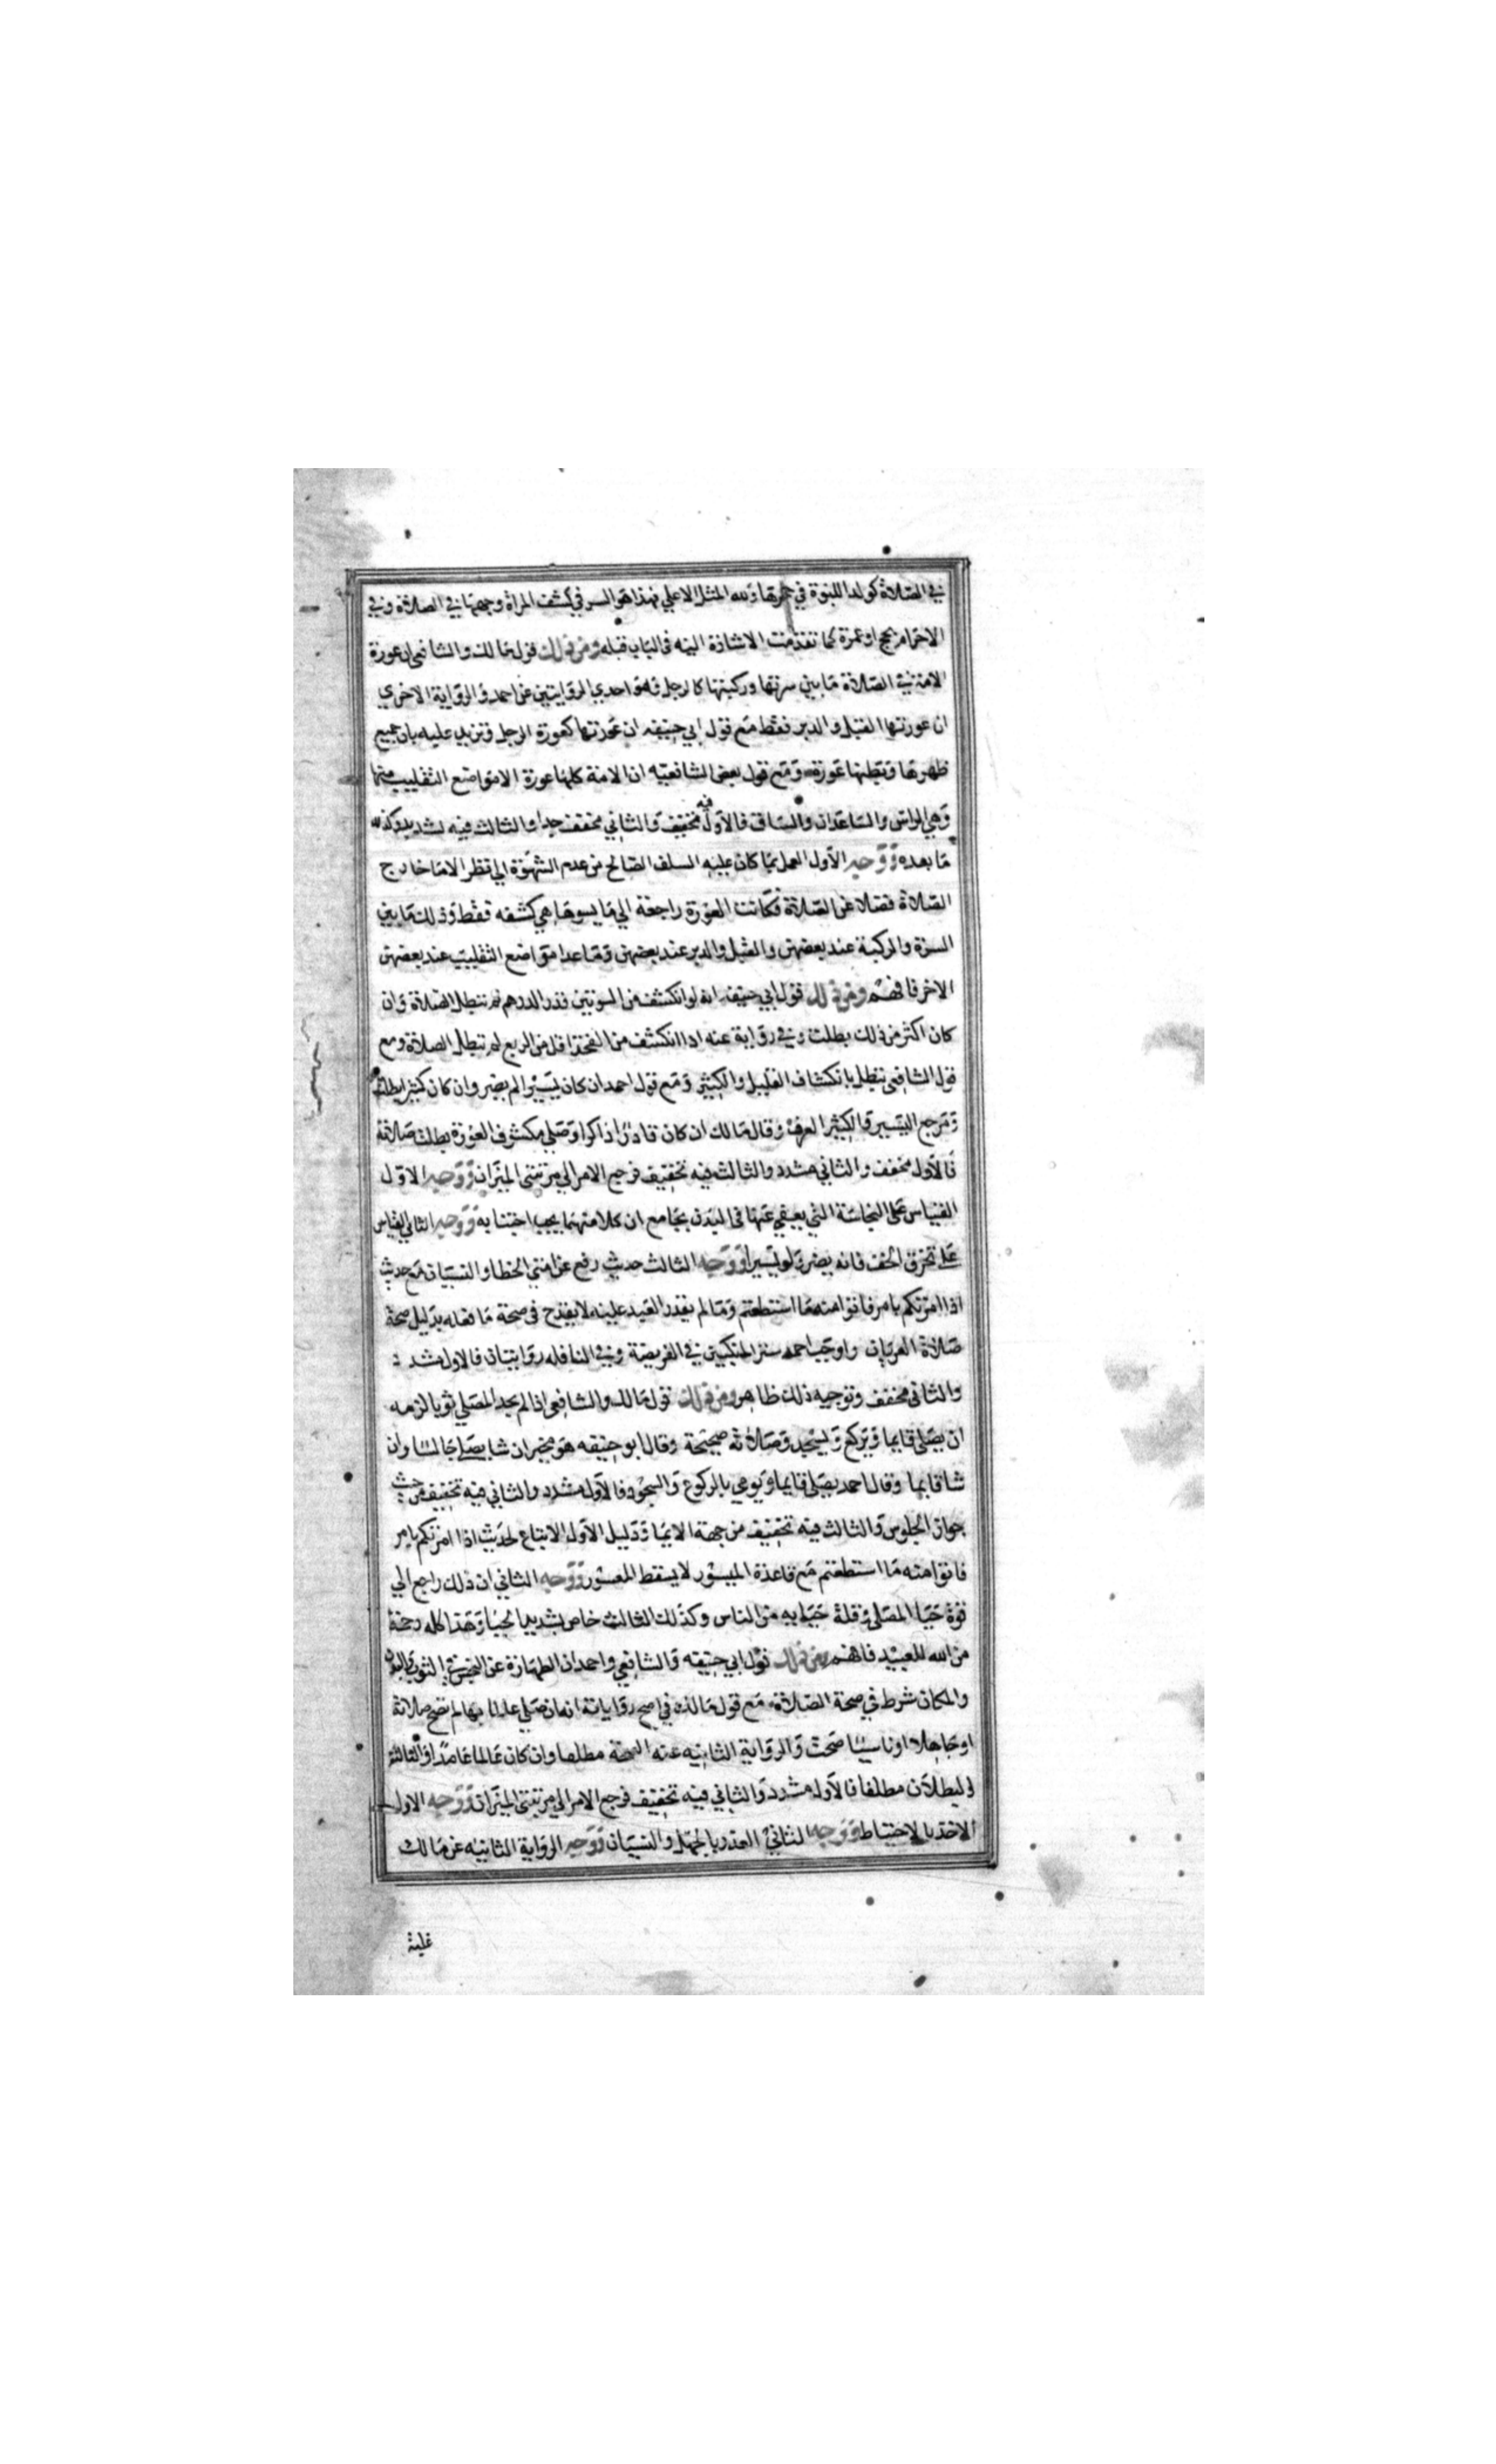 في الصلاة كولد اللبوة في حجرها ولله المثل الاعلي فهذا هو السر في كشف المراة وجهها في الصلاة وفي
الاحرام بحج او عمرة كما تقدمت الاشارة اليه في الباب قبله ومن ذلك قول مالك والشافعي ان عورة
الامة في الصلاة ما بين سرتها وركبتها كالرجل وهو احدي الروايتين عن احمد والرواية الاخري
ان عورتها القبل والدبر فقط مع قول ابي حنيفه ان عورتها كعورة الرجل وتزيد عليه بان جميع
ظهرها وبطنها عورة ومع قول بعض الشافعيه ان الامة كلها عورة الا مواضع التقليب منها
وهي الراس والساعدان والساق فالاول فيه تخفيف والثاني مخفف جدا والثالث فيه تشديد وكذلك
ما بعده ووجه الاول العمل بما كان عليه السلف الصالح من عدم الشهوة الي نظر الاما خارج
الصلاة فضلا عن الصلاة فكانت العورة راجعة الي ما يسوها هي كشفه فقط وذلك ما بين
السرة والركبة عند بعضهن والقبل والدبر عند بعضهن وما عدا مواضع التقليب عند بعضهن
الاخر فافهم ومن ذلك قول ابي حنيفه انه لو انكشف من السوتين قدر الدرهم لم تبطل الصلاة وان
كان اكثر من ذلك بطلت وفي رواية عنه اذا انكشف من الفخذ اقل من الربع لم تبطل الصلاة ومع
قول الشافعي تبطل بانكشاف القليل والكثير ومع قول احمد ان كان يسيرا لم يضر وان كان كثيرا بطلت
ومرجع اليسير والكثير العرف وقال مالك ان كان قادرا ذاكرا وصلي مكشوف العورة بطلت صلاته
فالاول مخفف والثاني مشدد والثالث فيه تخفيف فرجع الامر الي مرتبتي الميزان ووجه الاول
القياس علي النجاسة التي يعفي عنها في البدن بجامع ان كلا منهما يجب اجتنابه ووجه الثاني القياس
علي تخرق الخف فانه يضر ولو يسيرا ووجه الثالث حديث رفع عن امتي الخطا والنسيان مع حديث
اذا امرتكم بامر فاتوا منه ما استطعتم وما لم يقدر العبد عليه لا يقدح في صحة ما فعله بدليل صحة
صلاة العريان واوجب احمد ستر المنكبين في الفريضة وفي النافله روايتان فالاول مشدد
والثاني مخفف وتوجيه ذلك ظاهر ومن ذلك قول مالك والشافعي اذا لم يجد المصلي ثوبا لزمه
ان يصلي قايما ويركع ويسجد وصلاته صحيحة وقال ابو حنيفه هو مخير ان شا يصلي جالسا وان
شا قايما وقال احمد يصلي قايما ويومي بالركوع والسجود فالاول مشدد والثاني فيه تخفيف من حيث
جواز الجلوس والثالث فيه تخفيف من جهة الايما ودليل الاول الاتباع لحديث اذا امرتكم بامر
فاتوا منه ما استطعتم مع قاعدة الميسور لا يسقط المعسور ووجه الثاني ان ذلك راجع الي
قوة حيا المصلي وقلة حيايه من الناس وكذلك الثالث خاص بشديد الحيا وهذا كله رحمة
من الله للعبيد فافهم ومن ذلك قول ابي حنيفه والشافعي واحمد ان الطهارة عن النجس في الثوب والبدن
والمكان شرط في صحة الصلاة مع قول مالك في اصح رواياته انه ان صلي عالما بها لم تصح صلاته
او جاهلا او ناسيا صحت والرواية الثانيه عنه الصحة مطلقا وان كان عالما عامدا والثالثة
البطلان مطلقا فالاول مشدد والثاني فيه تخفيف فرجع الامر الي مرتبتي الميزان ووجه الاول
الاخذ بالاحتياط ووجه الثاني العذر بالجهل والنسيان ووجه الرواية الثانيه عن مالك
غلبة